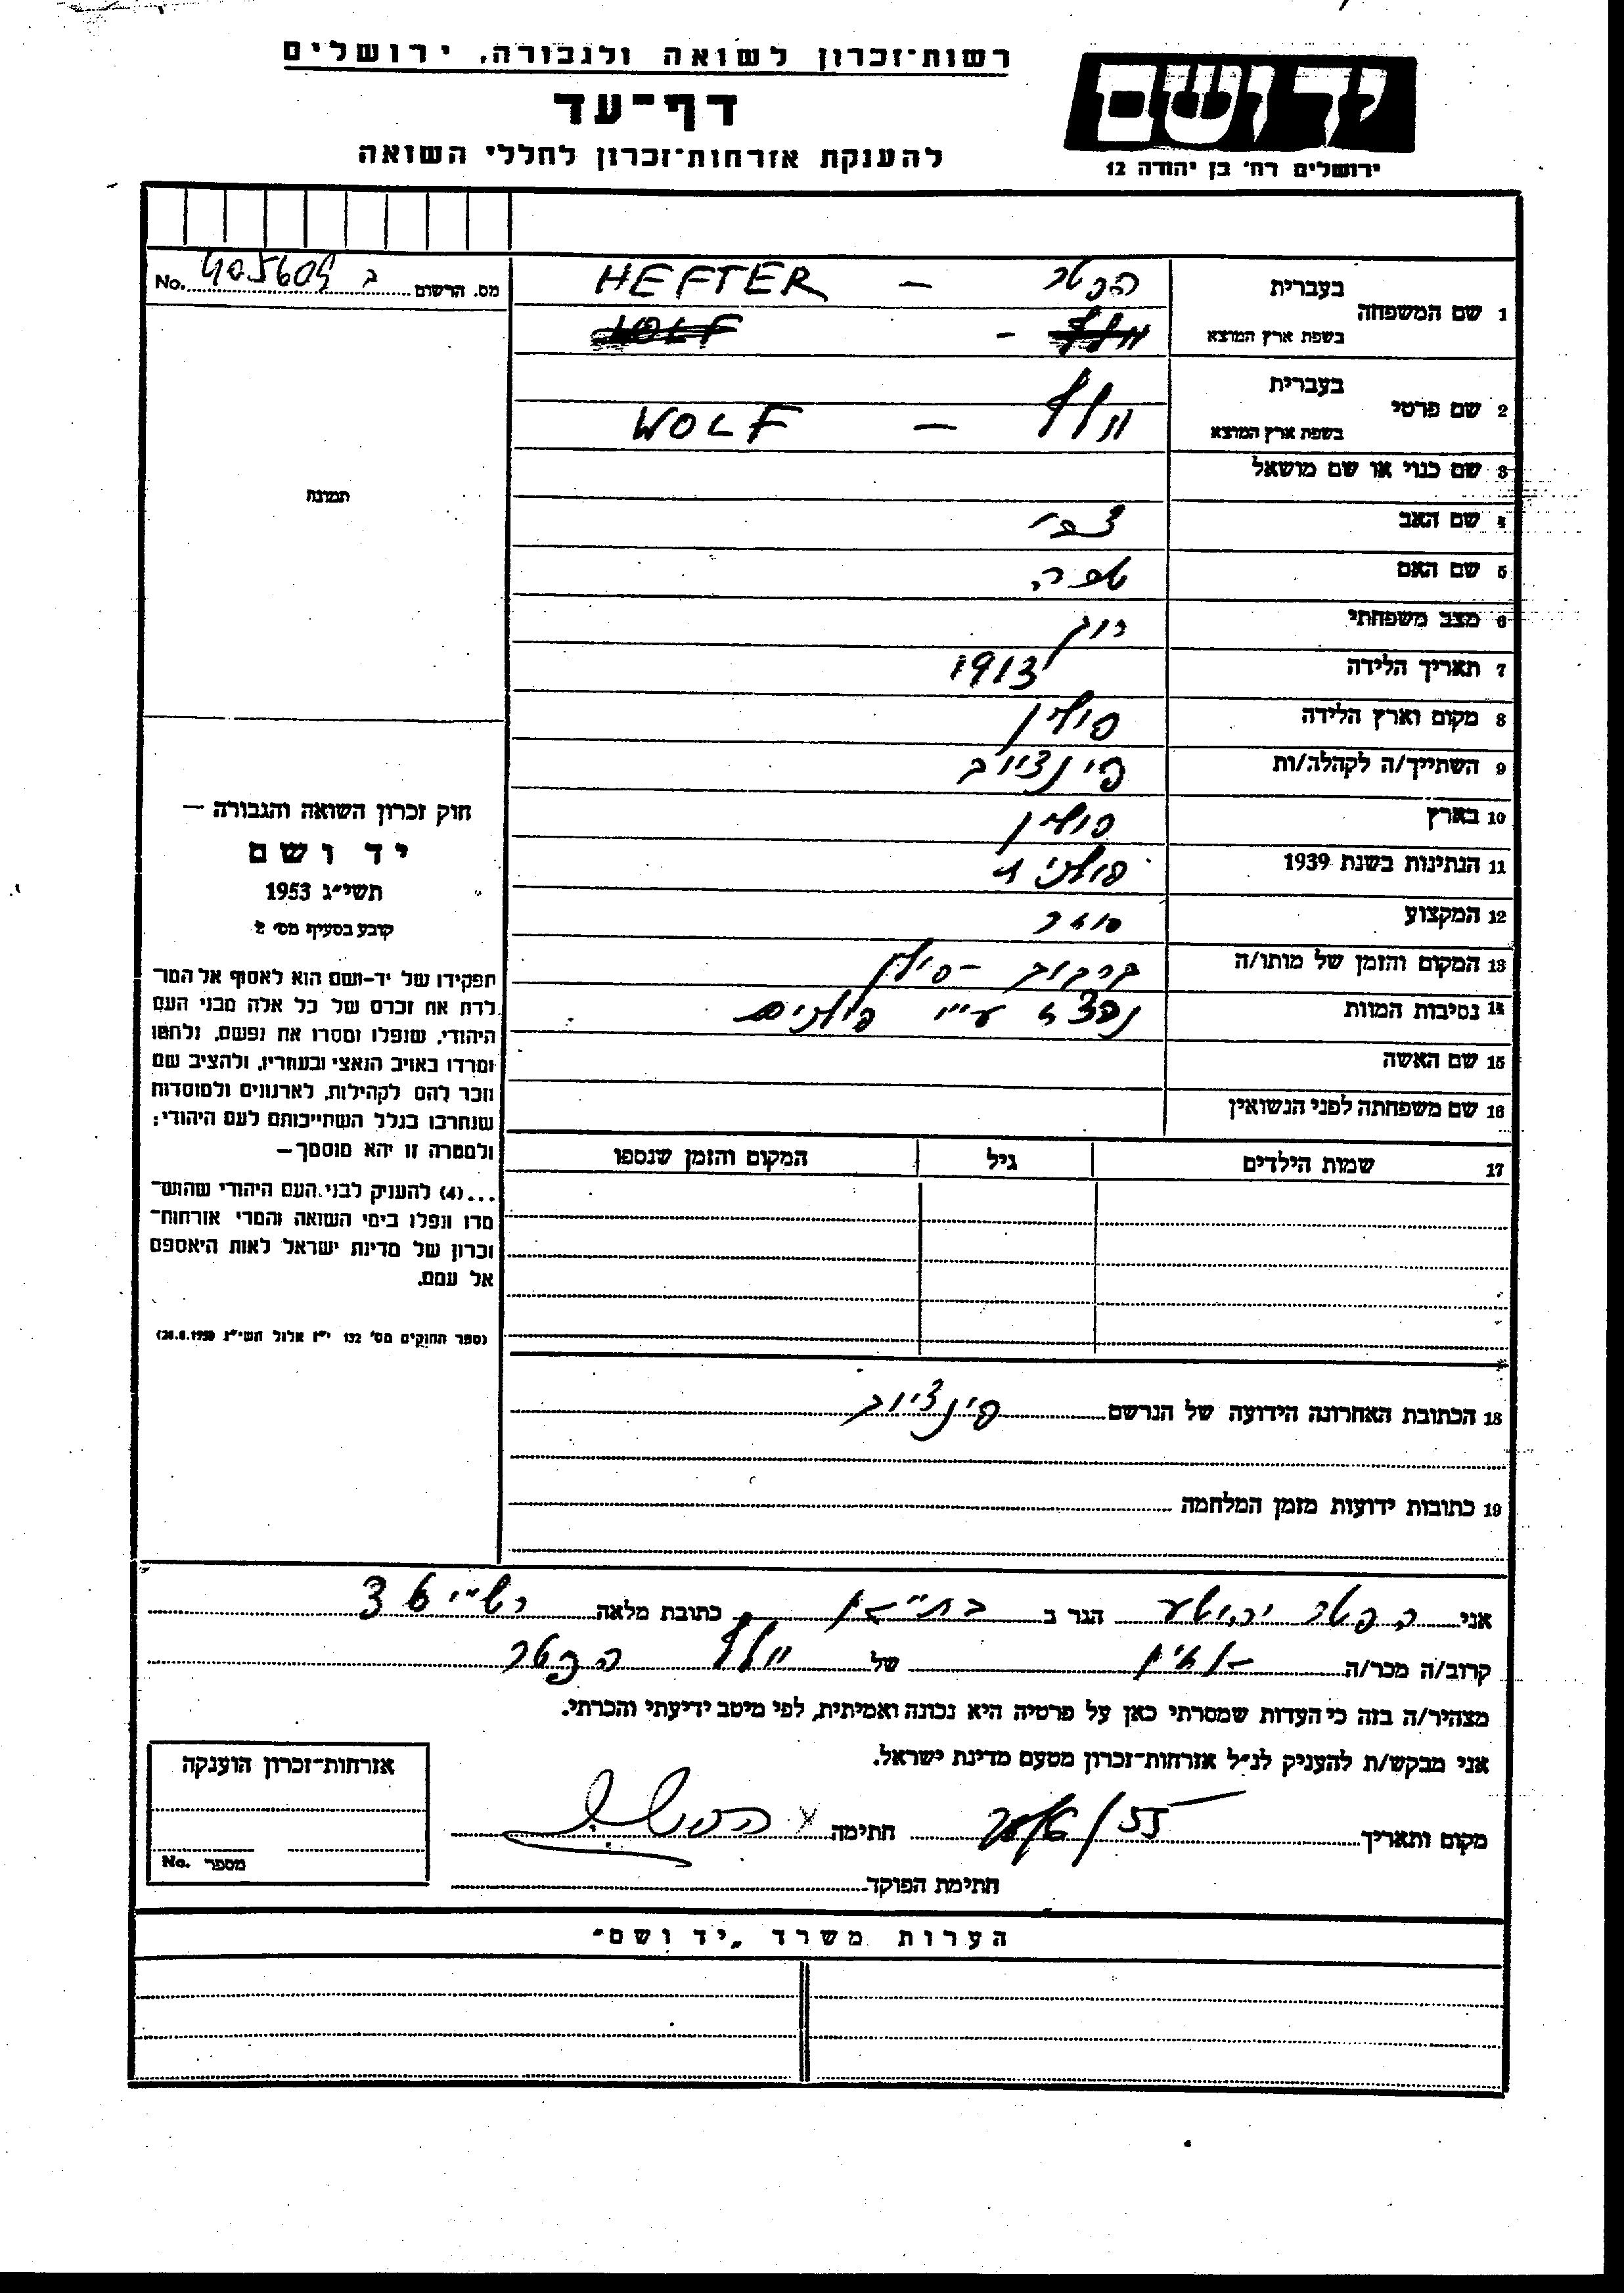 רשות־זכרון לשואה ולגבורה, ירושלים
דף־עד
להענקת אזרחות־זכרון לחללי השואה
יד ושם
ירושלים רח' בן יהודה 12
מס. הרשום ב 405609 No.
1 שם המשפחה בעברית הפטר – HEFTER
בשפת ארץ המוצא וולף – WOLF
2 שם פרטי בעברית
בשפת ארץ המוצא וולף – WOLF
3 שם כנוי או שם מושאל
4 שם האב צבי
5 שם האם
6 מצב משפחתי רווק
7 תאריך הלידה 1913
8 מקום וארץ הלידה פולין
9 השתייך/ה לקהלה/ות פינצ'וב
10 בארץ פולין
11 הנתינות בשנת 1939 פולנית
12 המקצוע סוחר
13 המקום והזמן של מותו/ה קרקוב - פולין
14 נסיבות המוות נרצח ע"י פולנים
15 שם האשה
16 שם משפחתה לפני הנשואין
17 שמות הילדים גיל המקום והזמן שנספו
תמונה
חוק זכרון השואה והגבורה –
יד ושם
תשי״ג 1953
קובע בסעיף מס' 2
תפקידו של יד-ושם הוא לאסוף אל המו־
לדת את זכרם של כל אלה מבני העם
היהודי, שנפלו ומסרו את נפשם, נלחמו
ומרדו באויב הנאצי ובעוזריו, ולהציב שם
וזכר להם לקהילות, לארגונים ולמוסדות
שנחרבו בגלל השתייכותם לעם היהודי;
ולמטרה זו יהא מוסמך –
...(4) להעניק לבני העם היהודי שהושמ־
דו ונפלו בימי השואה והמרי אזרחות־
זכרון של מדינת ישראל לאות היאספם
אל עמם.
(ספר החוקים מס' 132 י״ז אלול תשי״ג 28.8.1953)
18 הכתובת האחרונה הידועה של הנרשם פינצ'וב
19 כתובות ידועות מזמן המלחמה
אני הפטר יהושע הגר ב כתובת מלאה רש"י 36
קרוב/ה מכר/ה של וולף הפטר
מצהיר/ה בזה כי העדות שמסרתי כאן על פרטיה היא נכונה ואמיתית, לפי מיטב ידיעתי והכרתי.
אני מבקש/ת להעניק לנ״ל אזרחות־זכרון מטעם מדינת ישראל.
מקום ותאריך 55 חתימה
חתימת הפוקד
אזרחות־זכרון הוענקה
מספר No.
הערות משרד „יד ושם״